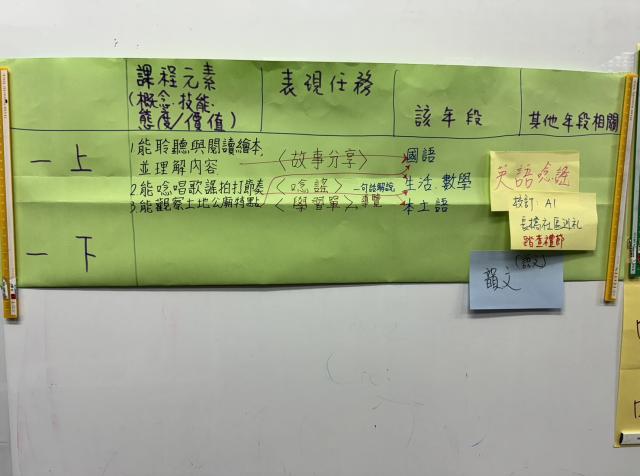 課程元素
(概念.技能.
態度/價值)
表現任務
該年段
其他年段相關
一上
1.能聆聽與閱讀繪本,
並理解內容
2.能唸唱歌謠拍打節奏
3.能觀察土地公廟特點
〈故事分享〉
〈唸謠〉
〈學習單〉
一句話解說
導覽
國語
生活.數學
本土語
英語唸謠
校訂:AI
長橋社區巡礼
踏查禮節
(語文)
韻文
一下